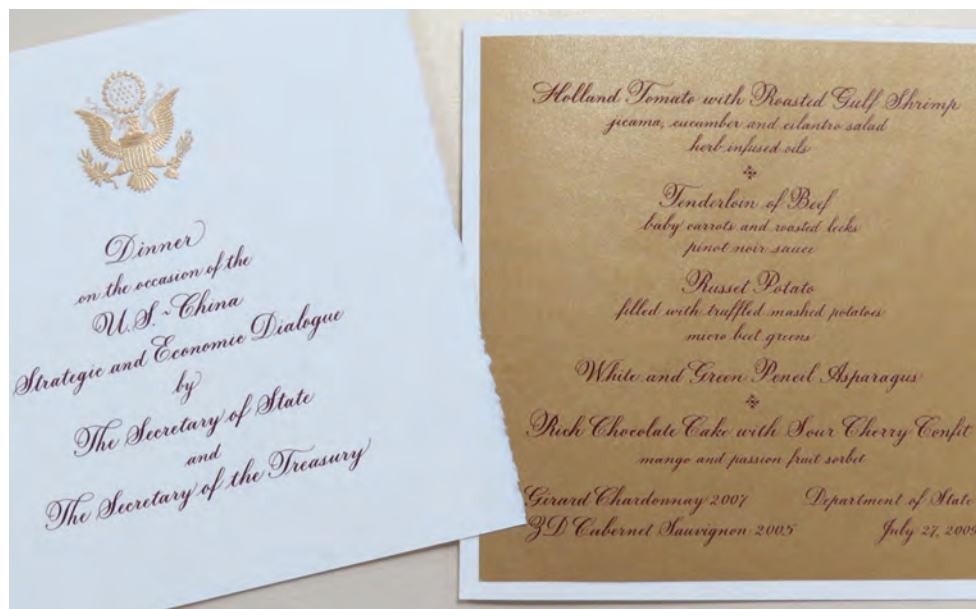 Dinner
on the occasion of the
U.S. ~ China
Strategic and Economic Dialogue
by
The Secretary of State
and
The Secretary of the Treasury
Holland Tomato with Roasted Gulf Shrimp
jicama, cucumber and cilantro salad
herb infused oils
Tenderloin of Beef
baby carrots and roasted leeks
pinot noir sauce
Russet Potato
filled with truffled mashed potatoes
micro beet greens
White and Green Pencil Asparagus
Rich Chocolate Cake with Sour Cherry Confit
mango and passion fruit sorbet
Girard Chardonnay 2007 Department of State
ZD Cabernet Sauvignon 2005 July 27, 2009